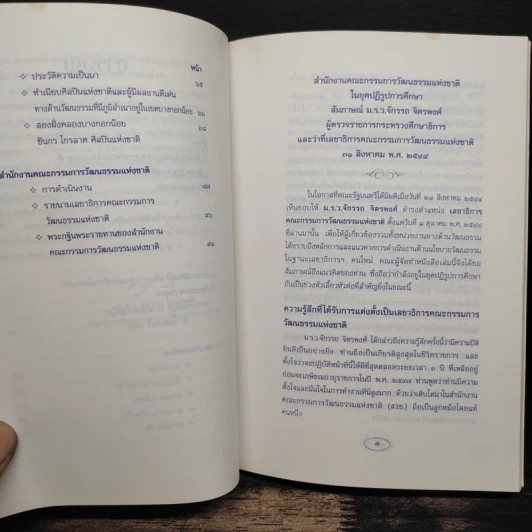 หน้า
❖ ประวัติความเป็นมา ๖๕
❖ ทำเนียบศิลปินแห่งชาติและผู้มีผลงานดีเด่น
ทางด้านวัฒนธรรมที่มีภูมิลำเนาอยู่ในเขตบางกอกน้อย ๖๖
❖ สองฝั่งคลองบางกอกน้อย ๖๘
ชินกร ไกรลาศ ศิลปินแห่งชาติ
สำนักงานคณะกรรมการวัฒนธรรมแห่งชาติ
❖ การดำเนินงาน
❖ รายนามเลขาธิการคณะกรรมการ
วัฒนธรรมแห่งชาติ
❖ พระกฐินพระราชทานของสำนักงาน
คณะกรรมการวัฒนธรรมแห่งชาติ
สำนักงานคณะกรรมการวัฒนธรรมแห่งชาติ
ในยุคปฏิรูปการศึกษา
สัมภาษณ์ ม.ร.ว.จักรรถ จิตรพงศ์
ผู้ตรวจราชการกระทรวงศึกษาธิการ
และว่าที่เลขาธิการคณะกรรมการวัฒนธรรมแห่งชาติ
๓๑ สิงหาคม พ.ศ. ๒๕๔๔
ในโอกาสที่คณะรัฐมนตรีได้มีมติเมื่อวันที่ ๒๑ สิงหาคม ๒๕๔๔
เห็นชอบให้ ม.ร.ว.จักรรถ จิตรพงศ์ ดำรงตำแหน่ง เลขาธิการ
คณะกรรมการวัฒนธรรมแห่งชาติ ตั้งแต่วันที่ ๑ ตุลาคม พ.ศ. ๒๕๔๔
ที่ผ่านมานั้น เพื่อให้ผู้เกี่ยวข้องรวมทั้งหน่วยงานทางด้านวัฒนธรรม
ได้ทราบถึงหลักการและแนวทางการดำเนินงานด้านนโยบายวัฒนธรรม
ในฐานะเลขาธิการฯ คนใหม่ คณะผู้จัดทำหนังสือเล่มนี้จึงได้ขอ
สัมภาษณ์ถึงแนวคิดของท่าน ซึ่งถือว่ากำลังอยู่ในยุคปฏิรูปการศึกษา
อันเป็นช่วงหัวเลี้ยวหัวต่อที่สำคัญยิ่งในขณะนี้
ความรู้สึกที่ได้รับการแต่งตั้งเป็นเลขาธิการคณะกรรมการ
วัฒนธรรมแห่งชาติ
ม.ร.ว.จักรรถ จิตรพงศ์ ได้กล่าวถึงความรู้สึกครั้งนี้ว่ามีความปีติ
ยินดีเป็นอย่างยิ่ง ท่านถือเป็นเกียรติสูงสุดในชีวิตราชการ และ
ตั้งใจว่าจะปฏิบัติหน้าที่นี้ให้ดีที่สุดตลอดระยะเวลา ๓ ปี ที่เหลืออยู่
ก่อนจะเกษียณอายุราชการในปี พ.ศ. ๒๕๔๗ ท่านพูดว่าท่านมีความ
ตั้งใจและมั่นใจในการทำงานที่นี่สูงมาก ด้วยว่าเติบโตมาในสำนักงาน
คณะกรรมการวัฒนธรรมแห่งชาติ (สวช.) ถือเป็นลูกหม้อโดยแท้
คนหนึ่ง